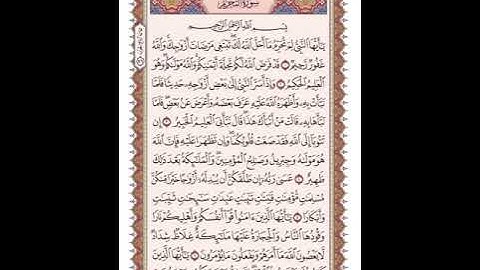 سُورَةُ التَّحْرِيمِ
بِسْمِ ٱللَّهِ ٱلرَّحْمَٰنِ ٱلرَّحِيمِ
يَٰٓأَيُّهَا ٱلنَّبِيُّ لِمَ تُحَرِّمُ مَآ أَحَلَّ ٱللَّهُ لَكَ تَبْتَغِي مَرْضَاتَ أَزْوَٰجِكَ وَٱللَّهُ
غَفُورٌ رَّحِيمٌ ١ قَدْ فَرَضَ ٱللَّهُ لَكُمْ تَحِلَّةَ أَيْمَٰنِكُمْ وَٱللَّهُ مَوْلَىٰكُمْ وَهُوَ
ٱلْعَلِيمُ ٱلْحَكِيمُ ٢ وَإِذْ أَسَرَّ ٱلنَّبِيُّ إِلَىٰ بَعْضِ أَزْوَٰجِهِۦ حَدِيثًا فَلَمَّا
نَبَّأَتْ بِهِۦ وَأَظْهَرَهُ ٱللَّهُ عَلَيْهِ عَرَّفَ بَعْضَهُۥ وَأَعْرَضَ عَنۢ بَعْضٍ فَلَمَّا
نَبَّأَهَا بِهِۦ قَالَتْ مَنْ أَنۢبَأَكَ هَٰذَا قَالَ نَبَّأَنِيَ ٱلْعَلِيمُ ٱلْخَبِيرُ ٣ إِن
تَتُوبَآ إِلَى ٱللَّهِ فَقَدْ صَغَتْ قُلُوبُكُمَا وَإِن تَظَٰهَرَا عَلَيْهِ فَإِنَّ ٱللَّهَ
هُوَ مَوْلَىٰهُ وَجِبْرِيلُ وَصَٰلِحُ ٱلْمُؤْمِنِينَ وَٱلْمَلَٰٓئِكَةُ بَعْدَ ذَٰلِكَ
ظَهِيرٌ ٤ عَسَىٰ رَبُّهُۥٓ إِن طَلَّقَكُنَّ أَن يُبْدِلَهُۥٓ أَزْوَٰجًا خَيْرًا مِّنكُنَّ
مُسْلِمَٰتٍ مُّؤْمِنَٰتٍ قَٰنِتَٰتٍ تَٰٓئِبَٰتٍ عَٰبِدَٰتٍ سَٰٓئِحَٰتٍ ثَيِّبَٰتٍ
وَأَبْكَارًا ٥ يَٰٓأَيُّهَا ٱلَّذِينَ ءَامَنُوا۟ قُوٓا۟ أَنفُسَكُمْ وَأَهْلِيكُمْ نَارًا
وَقُودُهَا ٱلنَّاسُ وَٱلْحِجَارَةُ عَلَيْهَا مَلَٰٓئِكَةٌ غِلَاظٌ شِدَادٌ
لَّا يَعْصُونَ ٱللَّهَ مَآ أَمَرَهُمْ وَيَفْعَلُونَ مَا يُؤْمَرُونَ ٦ يَٰٓأَيُّهَا ٱلَّذِينَ